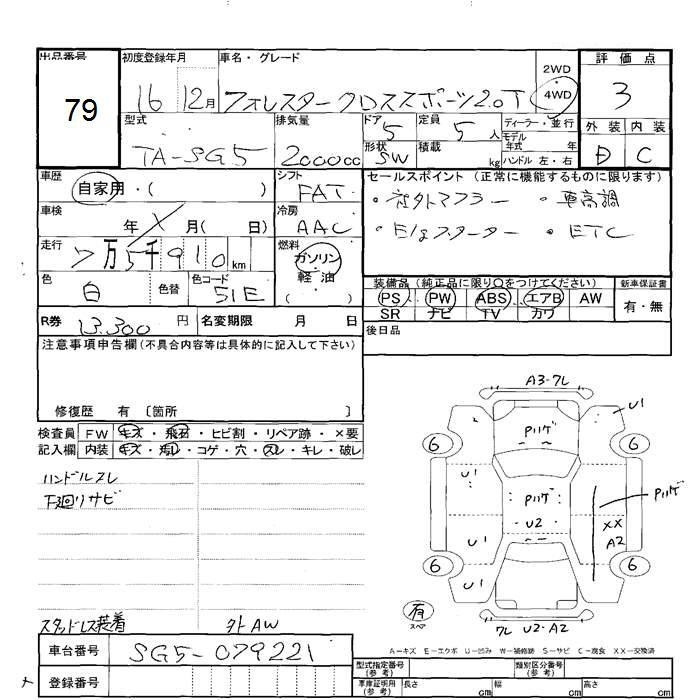 出品番号 初度登録年月 車名・グレード 評価点
79
16 12月 フォレスタークロススポーツ2.0T 2WD 4WD 3
型式 排気量 ドア 5 定員 5人 ディーラー・並行 外装 内装
TA-SG5 2000cc 形状 SW 積載 kg モデル年式 年 ハンドル 左・右 D C
車歴 自家用・( ) シフト FAT セールスポイント(正常に機能するものに限ります)
・社外マフラー ・車高調
車検 年 月( 日) 冷房 AAC
・E/gスターター ・ETC
走行 7万5千910km 燃料 ガソリン 軽油 ( )
色 白 色替 色コード 51E
装備品(純正品に限り○をつけてください) 新車保証書
PS PW ABS エアB AW 有・無
SR ナビ TV カワ
R券 13,300円 名変期限 月 日 後日品
注意事項申告欄(不具合内容等は具体的に記入して下さい)
修復歴 有 〔箇所 〕
検査員 FW キズ・飛石・ヒビ割・リペア跡・×要
記入欄 内装 キズ・汚レ・コゲ・穴・スレ・キレ・破レ
ハンドルスレ
下廻りサビ
スタッドレス装着 外AW
A3-7L
U1
Pハゲ
6 6
U1
Pハゲ
Pハゲ
U2
XX
U1 A2
6 6
U1
有
スペア
7L U2-A2
A-キズ E-エクボ U-凹み W-補修跡 S-サビ C-腐食 XX-交換済
車台番号 SG5-079221
型式指定番号(参考) 類別区分番号(参考)
登録番号
車庫証明用(参考) 長さ cm 幅 cm 高さ cm